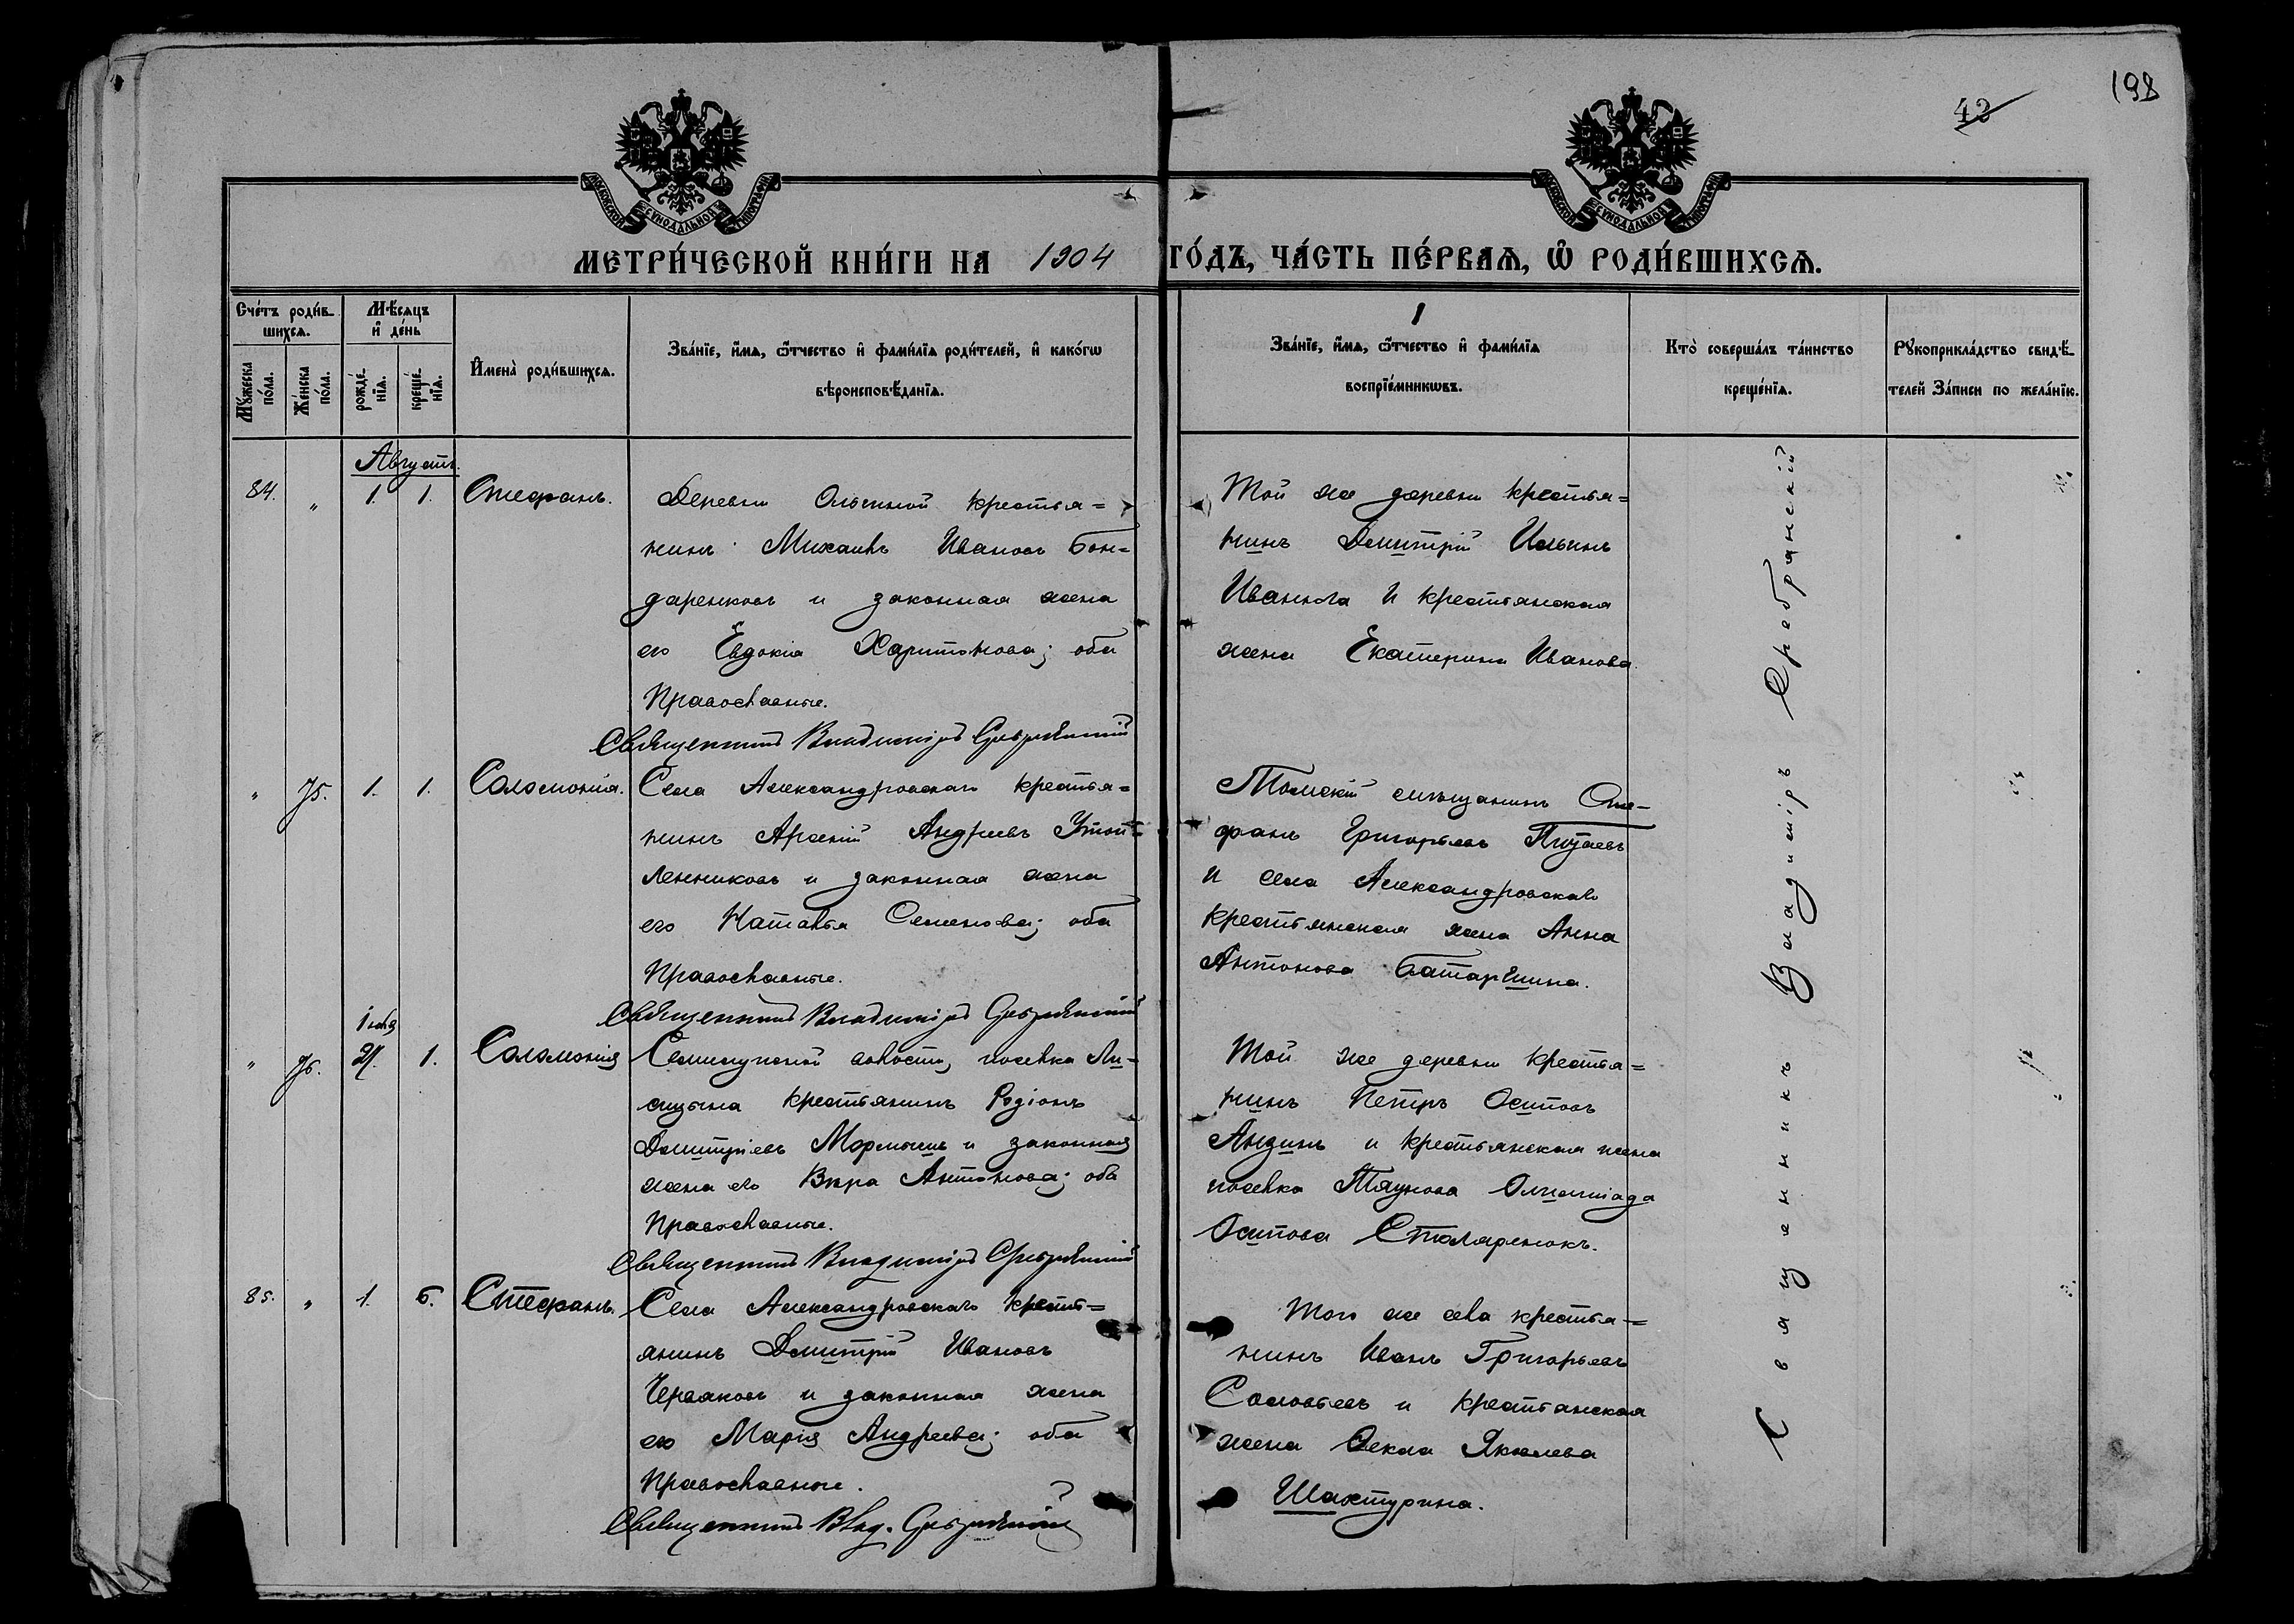 198
42
МОСКОВСКОЙ СѴНОДАЛЬНОЙ ТИПОГРАФІИ
МОСКОВСКОЙ СѴНОДАЛЬНОЙ ТИПОГРАФІИ
МЕТРИ́ЧЕСКОЙ КНИ́ГИ НА 1904 ГО́ДЪ, ЧА́СТЬ ПЕ́РВАѦ, Ѽ РОДИ́ВШИХСѦ.
Сче́тъ роди́в-
шихсѧ.
Мꙋ́жеска по́ла.
Же́нска по́ла.
Мѣ́сѧцъ и҆ де́нь
рожде́-
нїѧ.
креще́-
нїѧ.
И҆мена̀ роди́вшихсѧ.
Зва́нїе, и҆́мѧ, ѻ҆́тчество и҆ фами́лїѧ роди́телей, и҆ како́гѡ
вѣроисповѣ́данїѧ.
1
Зва́нїе, и҆́мѧ, ѻ҆́тчество и҆ фами́лїѧ
воспрїе́мникѡвъ.
Кто̀ соверша́лъ та́инство
креще́нїѧ.
Рꙋкоприкла́дство свидѣ́-
телей За́писи по жела́нїю.
Августъ.
84. " 1. 1. Стефанъ.
Деревни Ольгиной крестья=
нинъ Михаилъ Ивановъ Бон=
даренковъ и законная жена
его Евдокіа Харитонова; оба
Православные.
Священникъ Владиміръ Сребрянскій
Той же деревни крестья=
нинъ Димитрій Ильинъ
и крестьянская
жена Екатерина Иванова.
" 75. 1. 1. Соломонія.
Села Александровскаго крестья=
нинъ Арсеній Андреевъ
и законная жена
его Наталья Семенова; оба
Православные.
Священникъ Владиміръ Сребрянскій
Томскій мѣщанинъ Сте-
фанъ Григорьевъ
и села Александровскаго
крестьянская жена Анна
Антонова Батаргшина.
Іюля
" 76. 21. 1. Соломонія
волости, поселка Ли-
крестьянинъ Родіонъ
Димитріевъ и законная
жена его Вѣра Антонова; оба
Православные.
Священникъ Владиміръ Сребрянскій
Той же деревни крестья=
нинъ Петръ Осиповъ
и крестьянская жена
поселка Олимпіада
Осипова Столяренокъ.
85. " 1. 6. Стефанъ.
Села Александровскаго кресть=
янинъ Димитрій Ивановъ
Червяковъ и законная жена
его Марія Андреева; оба
Православные.
Священникъ Влад. Сребрянскій
Того же села крестья=
нинъ Иванъ Григорьевъ
Соловьевъ и крестьянская
жена Фекла Яковлева
Шахтурина.
Священникъ Владиміръ Сребрянскій